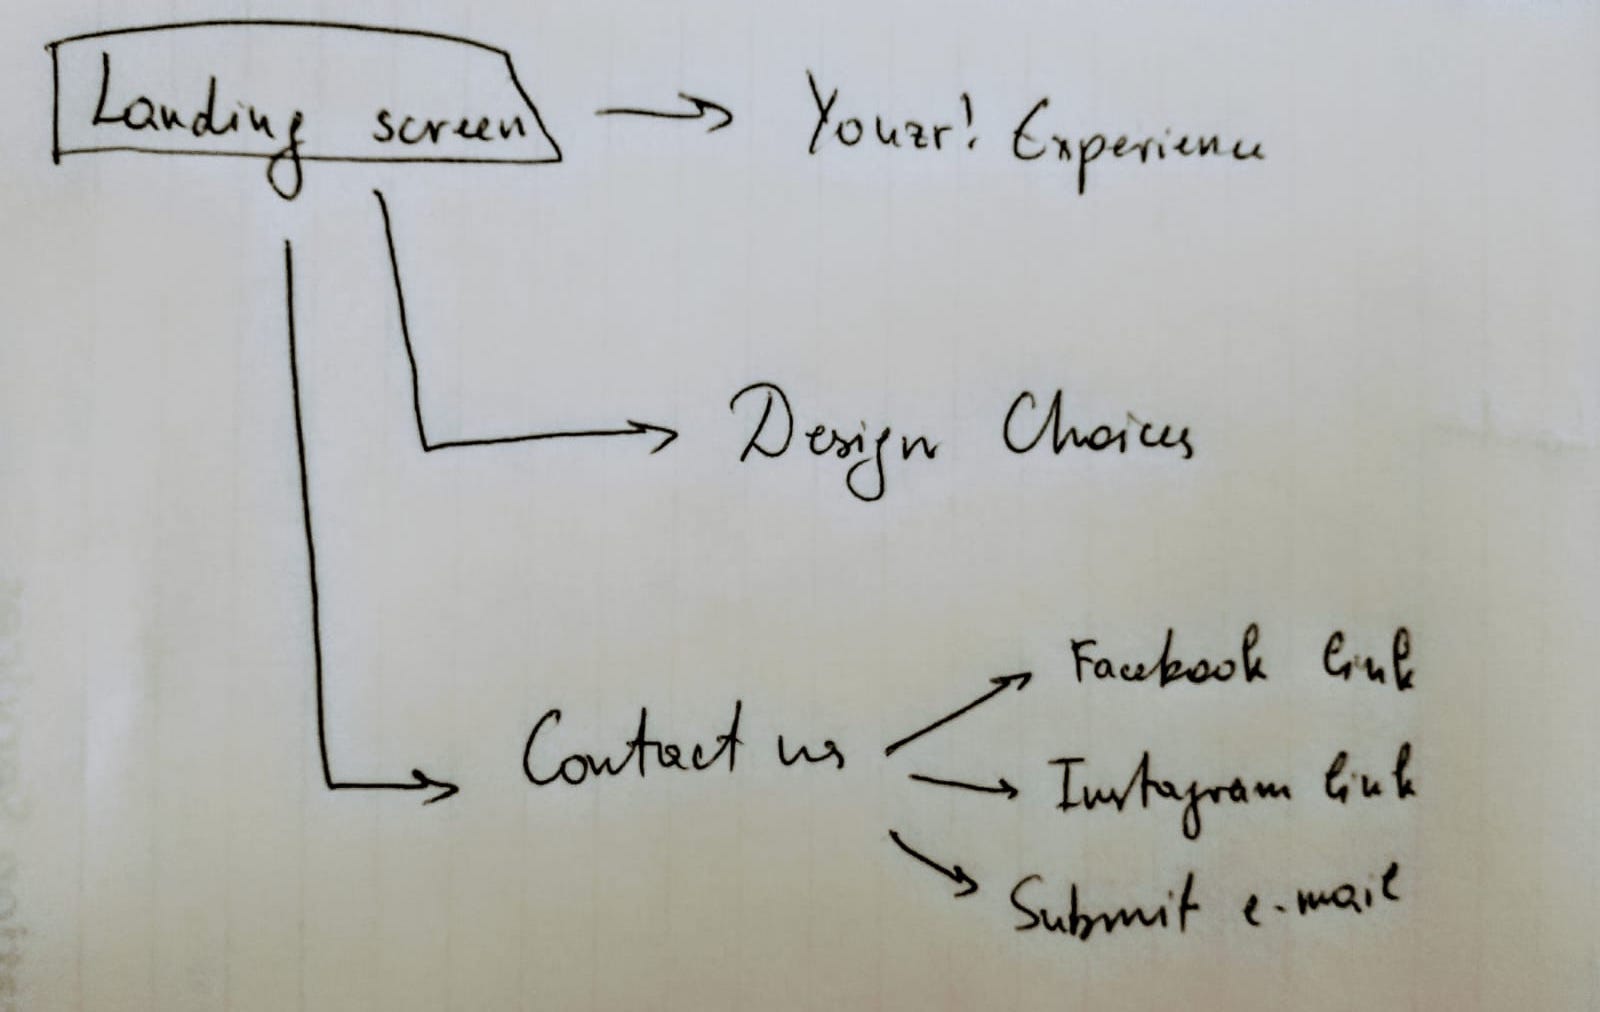 Landing screen
Youzr! Experience
Design Choices
Contact us
Facebook link
Instagram link
Submit e-mail